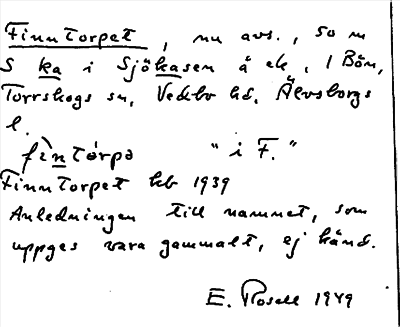 FinnTorpet, nu avs., som
S ka i Sjökasen å ek. 1 Bön,
Torrskogs sn, Vedbo hd, Älvsborgs
l.
fìntórpə "i F."
FinnTorpet kb 1939
Anledningen till namnet, som
uppges vara gammalt, ej känd.
E. Rosell 1949